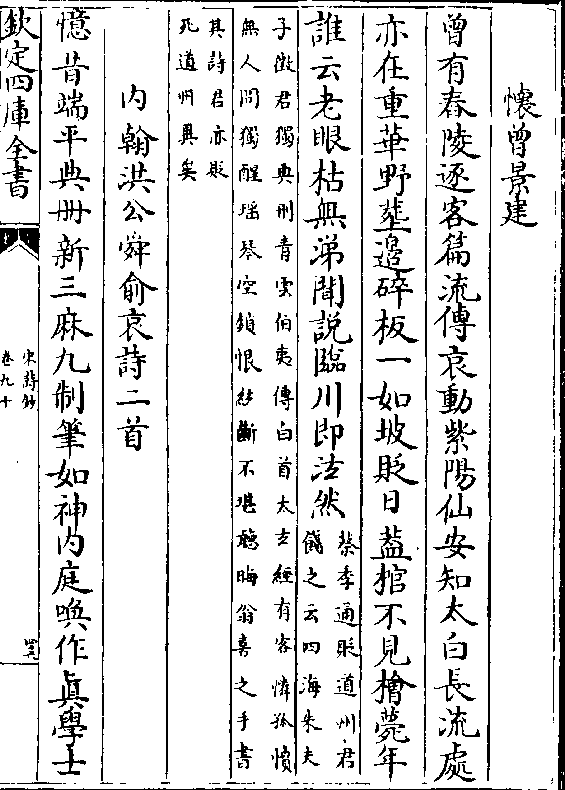 懷曾景建
曾有舂陵逐客篇流傳哀動紫陽仙安知太白長流處
亦在重華野塟邉碎板一如坡貶日葢棺不見檜薨年
誰云老眼枯無涕聞說臨川即泫然
蔡季通貶道州君
餞之云四海朱夫
子徵君獨典刑青雲伯夷傳白首太玄經有客憐孤憤
無人問獨醒瑶琴空鎖恨絃斷不堪聽晦翁喜之手書
其詩君亦貶
死道州異矣
内翰洪公舜俞哀詩二首
憶昔端平典冊新三麻九制筆如神内庭喚作眞學士
欽定四庫全書
宋詩鈔
卷九十